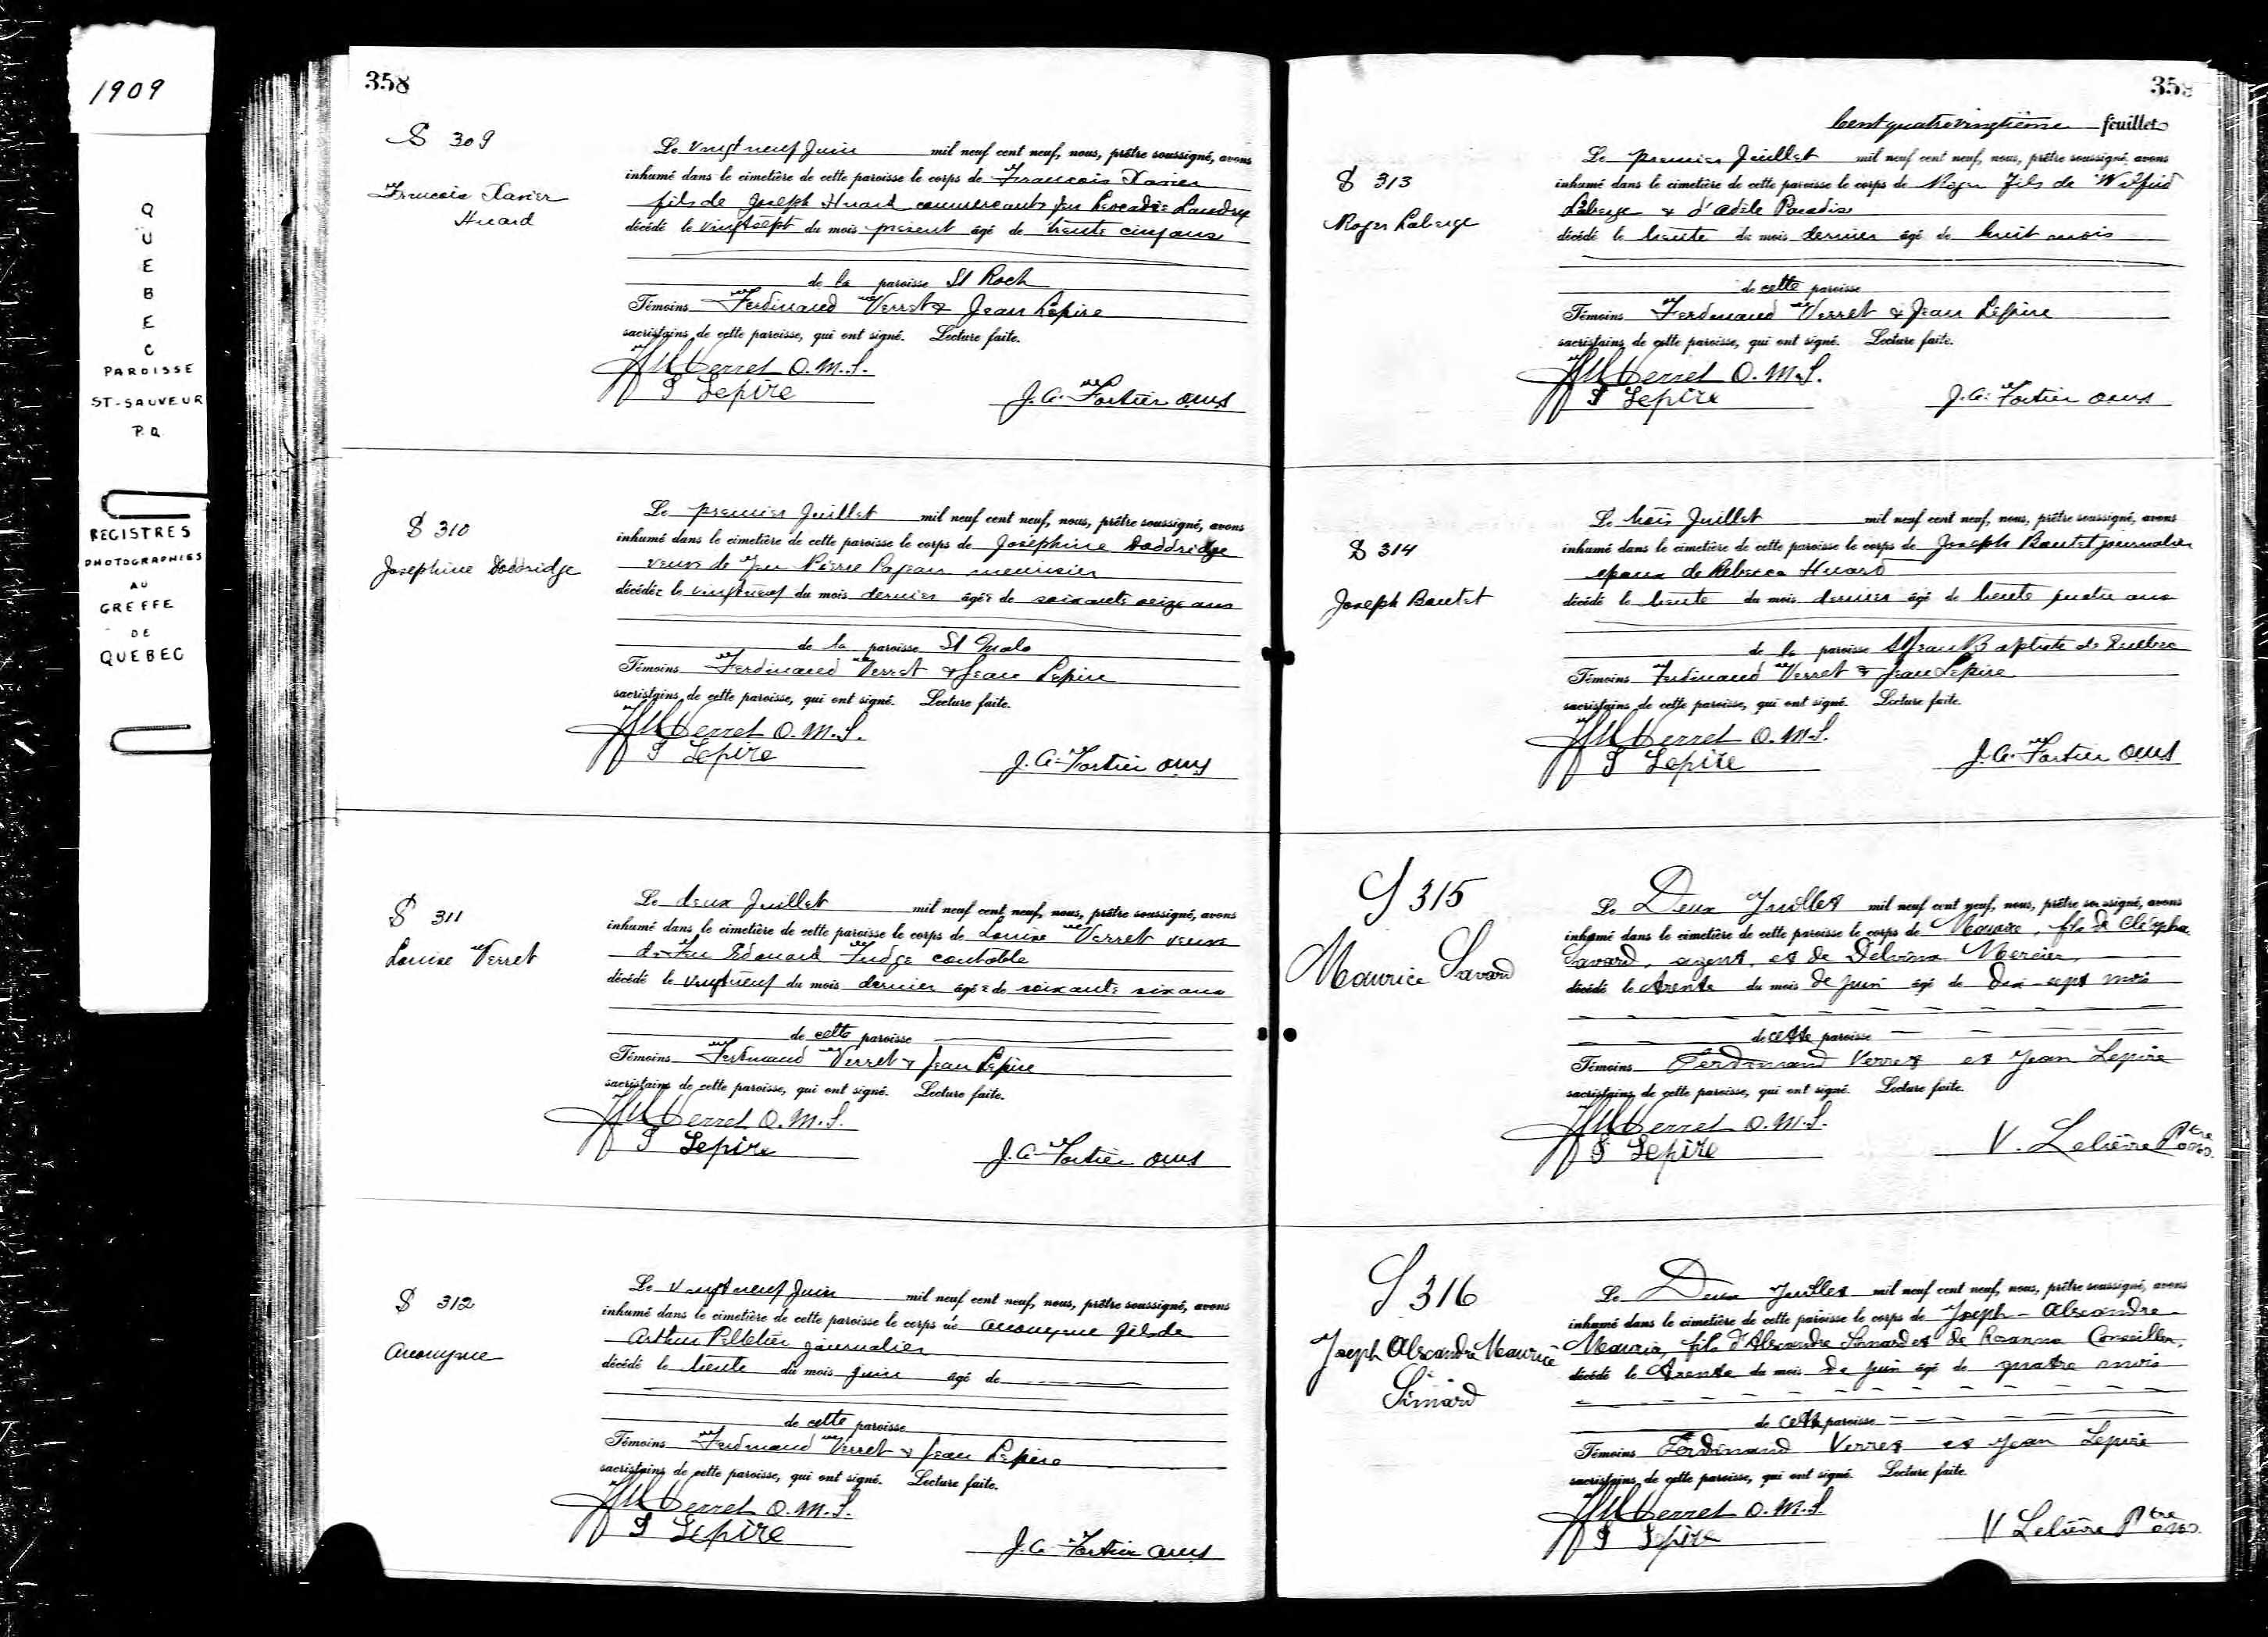 1909
QUEBEC
PAROISSE
ST-SAUVEUR
P.Q.
REGISTRES
PHOTOGRAPHIES
AU
GREFFE
DE
QUEBEC
358
S 309
Francois Xavier
Huard
Le vingt neuf Juin mil neuf cent neuf, nous, prêtre soussigné, avons
inhumé dans le cimetière de cette paroisse le corps de Francois Xavier
fils de Joseph Huard commercant & feu Leocadie Landry
décédé le vingt sept du mois present âgé de trente cinq ans
de la paroisse St Roch
Témoins Ferdinand Verret & Jean Lepire
sacristains de cette paroisse, qui ont signé. Lecture faite.
Verret O.M.I.
J Lepire
J. A. Fortier omi
S 310
Josephine Doddridge
Le premier Juillet mil neuf cent neuf, nous, prêtre soussigné, avons
inhumé dans le cimetière de cette paroisse le corps de Joséphine Doddridge
veuve de feu Pierre Pageau menuisier
décédée le vingt neuf du mois dernier âgée de soixante seize ans
de la paroisse St Malo
Témoins Ferdinand Verret & Jean Lepire
sacristains de cette paroisse, qui ont signé. Lecture faite.
Verret O.M.I.
J Lepire
J. A. Fortier omi
S 311
Louise Verret
Le deux Juillet mil neuf cent neuf, nous, prêtre soussigné, avons
inhumé dans le cimetière de cette paroisse le corps de Louise Verret veuve
de feu Edouard Fudge contable
décédé le vingt neuf du mois dernier âgée de soixante six ans
de cette paroisse
Témoins Ferdinand Verret & Jean Lepire
sacristains de cette paroisse, qui ont signé. Lecture faite.
Verret O.M.I.
J Lepire
J. A. Fortier omi
S 312
Anonyme
Le vingt neuf Juin mil neuf cent neuf, nous, prêtre soussigné, avons
inhumé dans le cimetière de cette paroisse le corps de anonyme fils de
Arthur Pelletier journalier
décédé le trente du mois juin âgé de
de cette paroisse
Témoins Ferdinand Verret & Jean Lepire
sacristains de cette paroisse, qui ont signé. Lecture faite.
Verret O.M.I.
J Lepire
J. A. Fortier omi
359
Cent quatrevingtième feuillet
S 313
Roger Laberge
Le premier Juillet mil neuf cent neuf, nous, prêtre soussigné, avons
inhumé dans le cimetière de cette paroisse le corps de Roger fils de Wilfrid
Laberge & d'Adèle Paradis
décédé le trente du mois dernier âgé de huit mois
de cette paroisse
Témoins Ferdinand Verret & Jean Lepire
sacristains de cette paroisse, qui ont signé. Lecture faite.
Verret O.M.I.
J Lepire
J. A. Fortier omi
S 314
Joseph Boutet
Le trois Juillet mil neuf cent neuf, nous, prêtre soussigné, avons
inhumé dans le cimetière de cette paroisse le corps de Joseph Boutet journalier
epoux de Rebecca Huard
décédé le trente du mois dernier âgé de trente quatre ans
de la paroisse St Jean Baptiste de Quebec
Témoins Ferdinand Verret & Jean Lepire
sacristains de cette paroisse, qui ont signé. Lecture faite.
Verret O.M.I.
J Lepire
J. A. Fortier omi
S 315
Maurice Savard
Le Deux Juillet mil neuf cent neuf, nous, prêtre soussigné, avons
inhumé dans le cimetière de cette paroisse le corps de Maurice, fils de Cléopha
Savard, agent, et de Delvina Mercier,
décédé le trente du mois de juin âgé de dix-sept mois
de cette paroisse
Témoins Ferdinand Verret et Jean Lepire
sacristains de cette paroisse, qui ont signé. Lecture faite.
Verret O.M.I.
J Lepire
V. Lelièvre Ptre o.m.i.
S 316
Joseph Alexandre Maurice
Simard
Le Deux Juillet mil neuf cent neuf, nous, prêtre soussigné, avons
inhumé dans le cimetière de cette paroisse le corps de Joseph-Alexandre
Maurice, fils d'Alexandre Simard et de Rosanna Conseiller,
décédé le trente du mois de juin âgé de quatre mois
de cette paroisse
Témoins Ferdinand Verret et Jean Lepire
sacristains de cette paroisse, qui ont signé. Lecture faite.
Verret O.M.I.
J Lepire
V Lelièvre Ptre o.m.i.